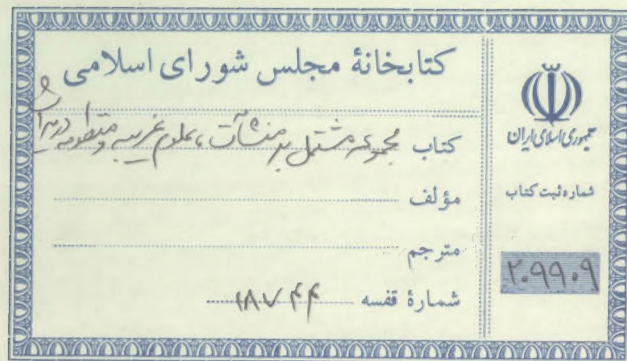 کتابخانهٔ مجلس شورای اسلامی
کتاب مجموعه مشتمل بر منشآت، علوم غریبه و منظومه در
مؤلف
مترجم
شمارهٔ قفسه ۱۸۷۴۴
جمهوری اسلامی ایران
شماره ثبت کتاب
۲۰۹۹۰۹